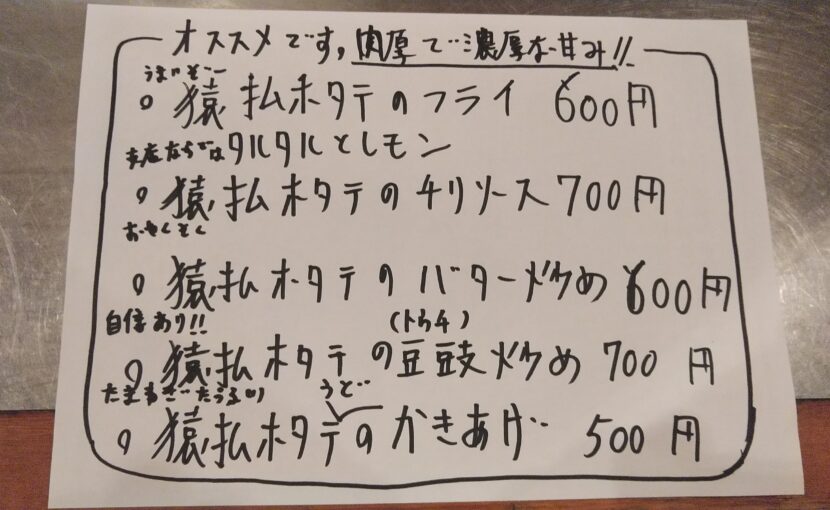 オススメです,肉厚で濃厚な甘み!!
うまいぞー
○猿払ホタテのフライ 600円
タルタルとレモン
○猿払ホタテのチリソース 700円
○猿払ホタテのバター炒め 600円
自信あり!! (トウチ)
○猿払ホタテの豆豉炒め 700円
うど
○猿払ホタテのかきあげ 500円